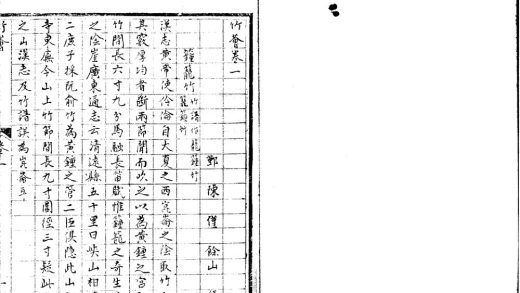 竹薈卷一
鄞 陳 僅 餘山
鐘籠竹 竹譜作籠籦竹
籠籦竹
漢志黃帝使伶倫自大夏之西崑崙之陰取竹
其竅厚均者斷兩節間而吹之以為黃鍾之宮
竹間長六寸九分馬融長笛賦惟籦籠之奇生
之陰崖廣東通志云清遠縣五十里曰峽山相
二庶子採阮俞竹為黃鍾之管二臣俱隱此山
寺東廡今山上竹節間長九寸圓徑三寸疑此
之山漢志及竹譜誤為崑崙五